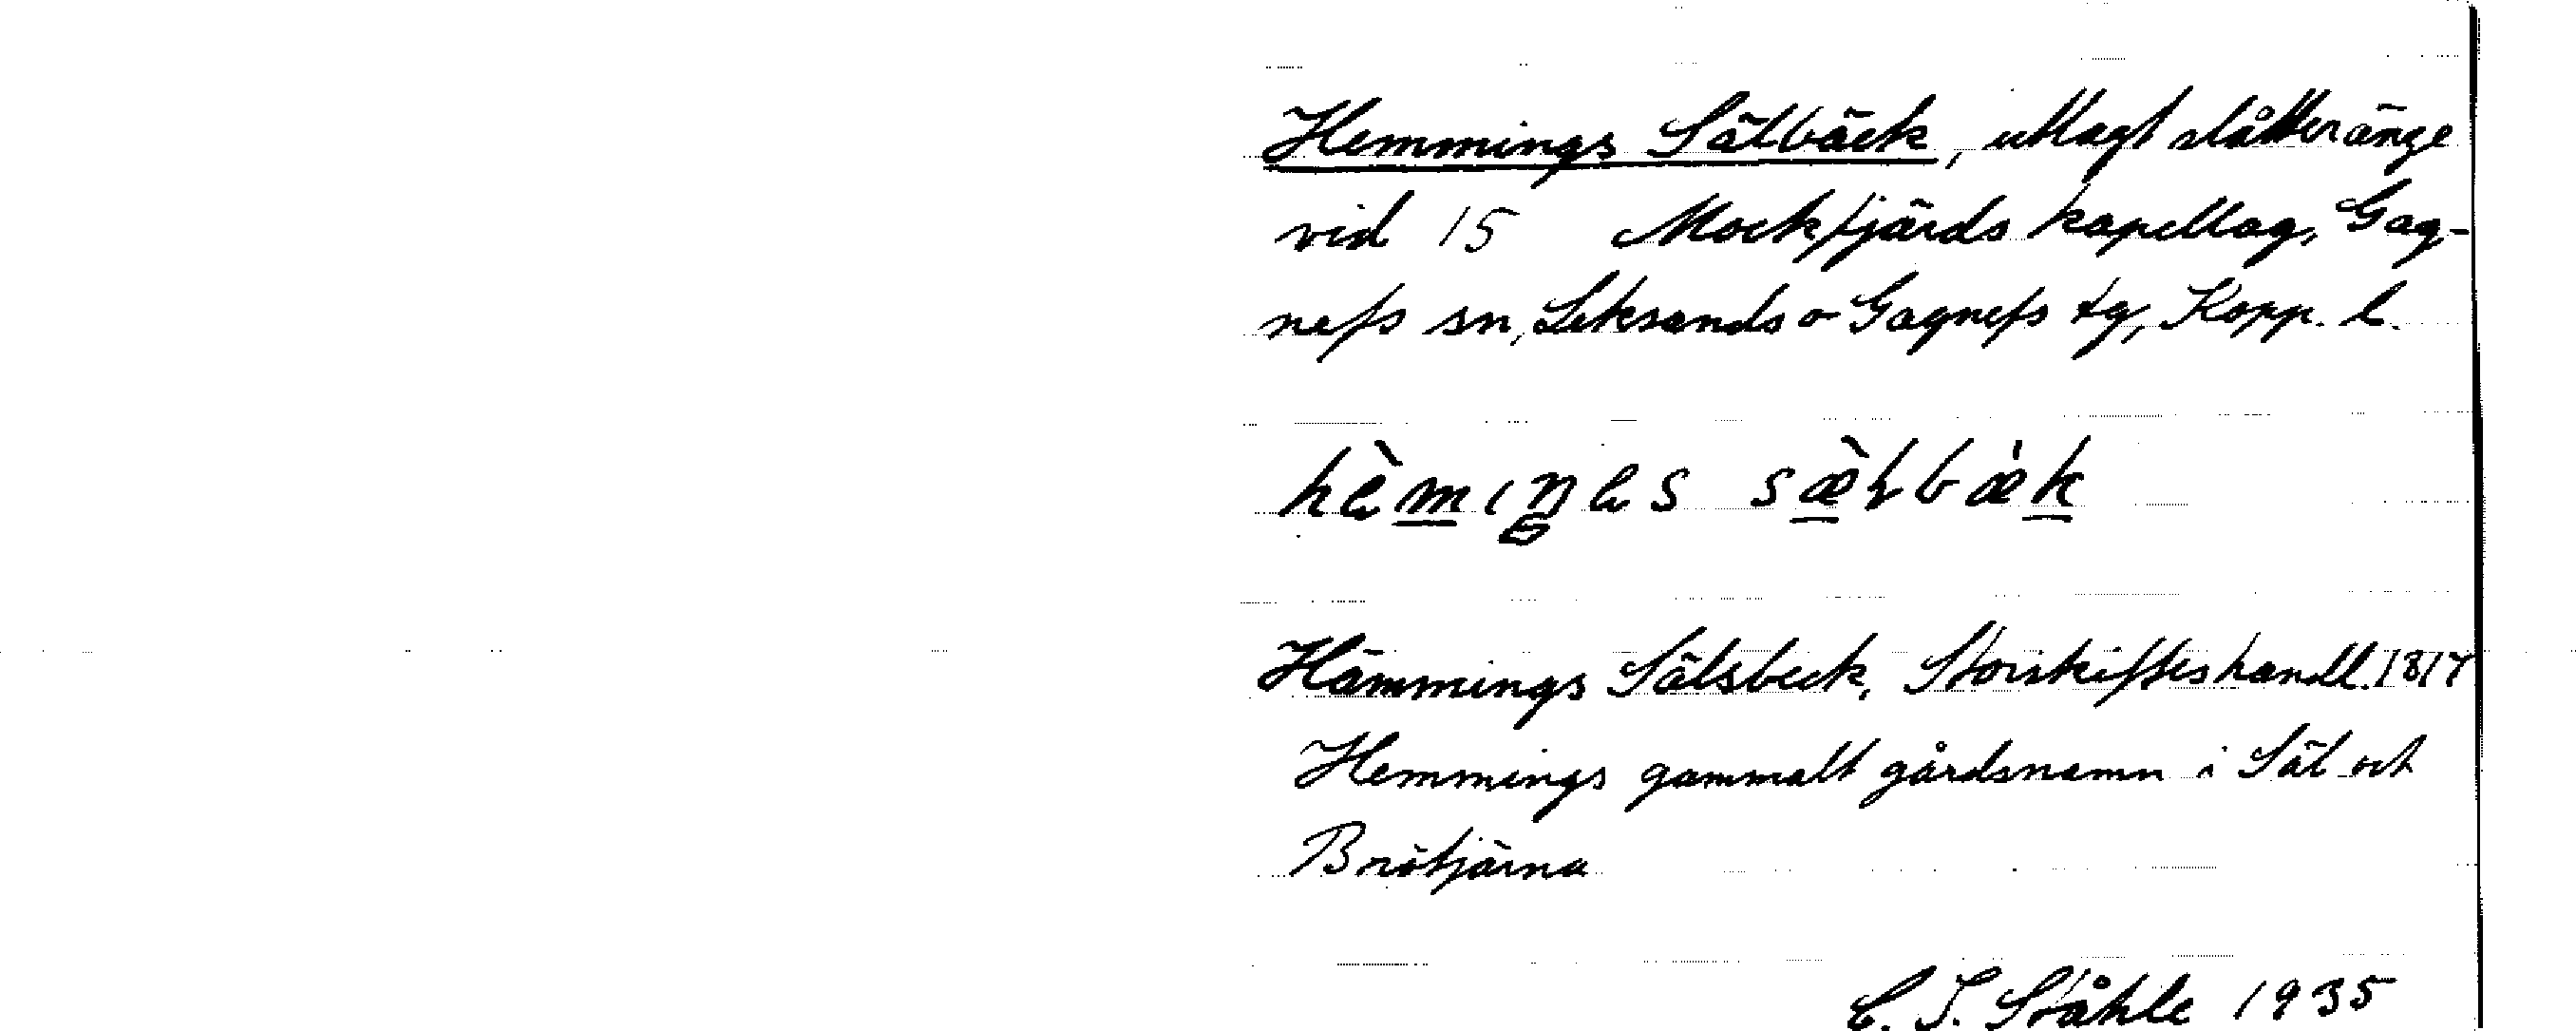 Hemmings Sälbäck, utlagt slåtteränge
vid 15 Mockfjärds kapellag, Gag-
nefs sn, Leksands o Gagnefs tg, Kopp. l.
Hämmings Sälsbeck, Storskifteshandl. 1817
Hemmings gammalt gårdsnamn i Säl och
Brötjärna
C. I. Ståhle 1935